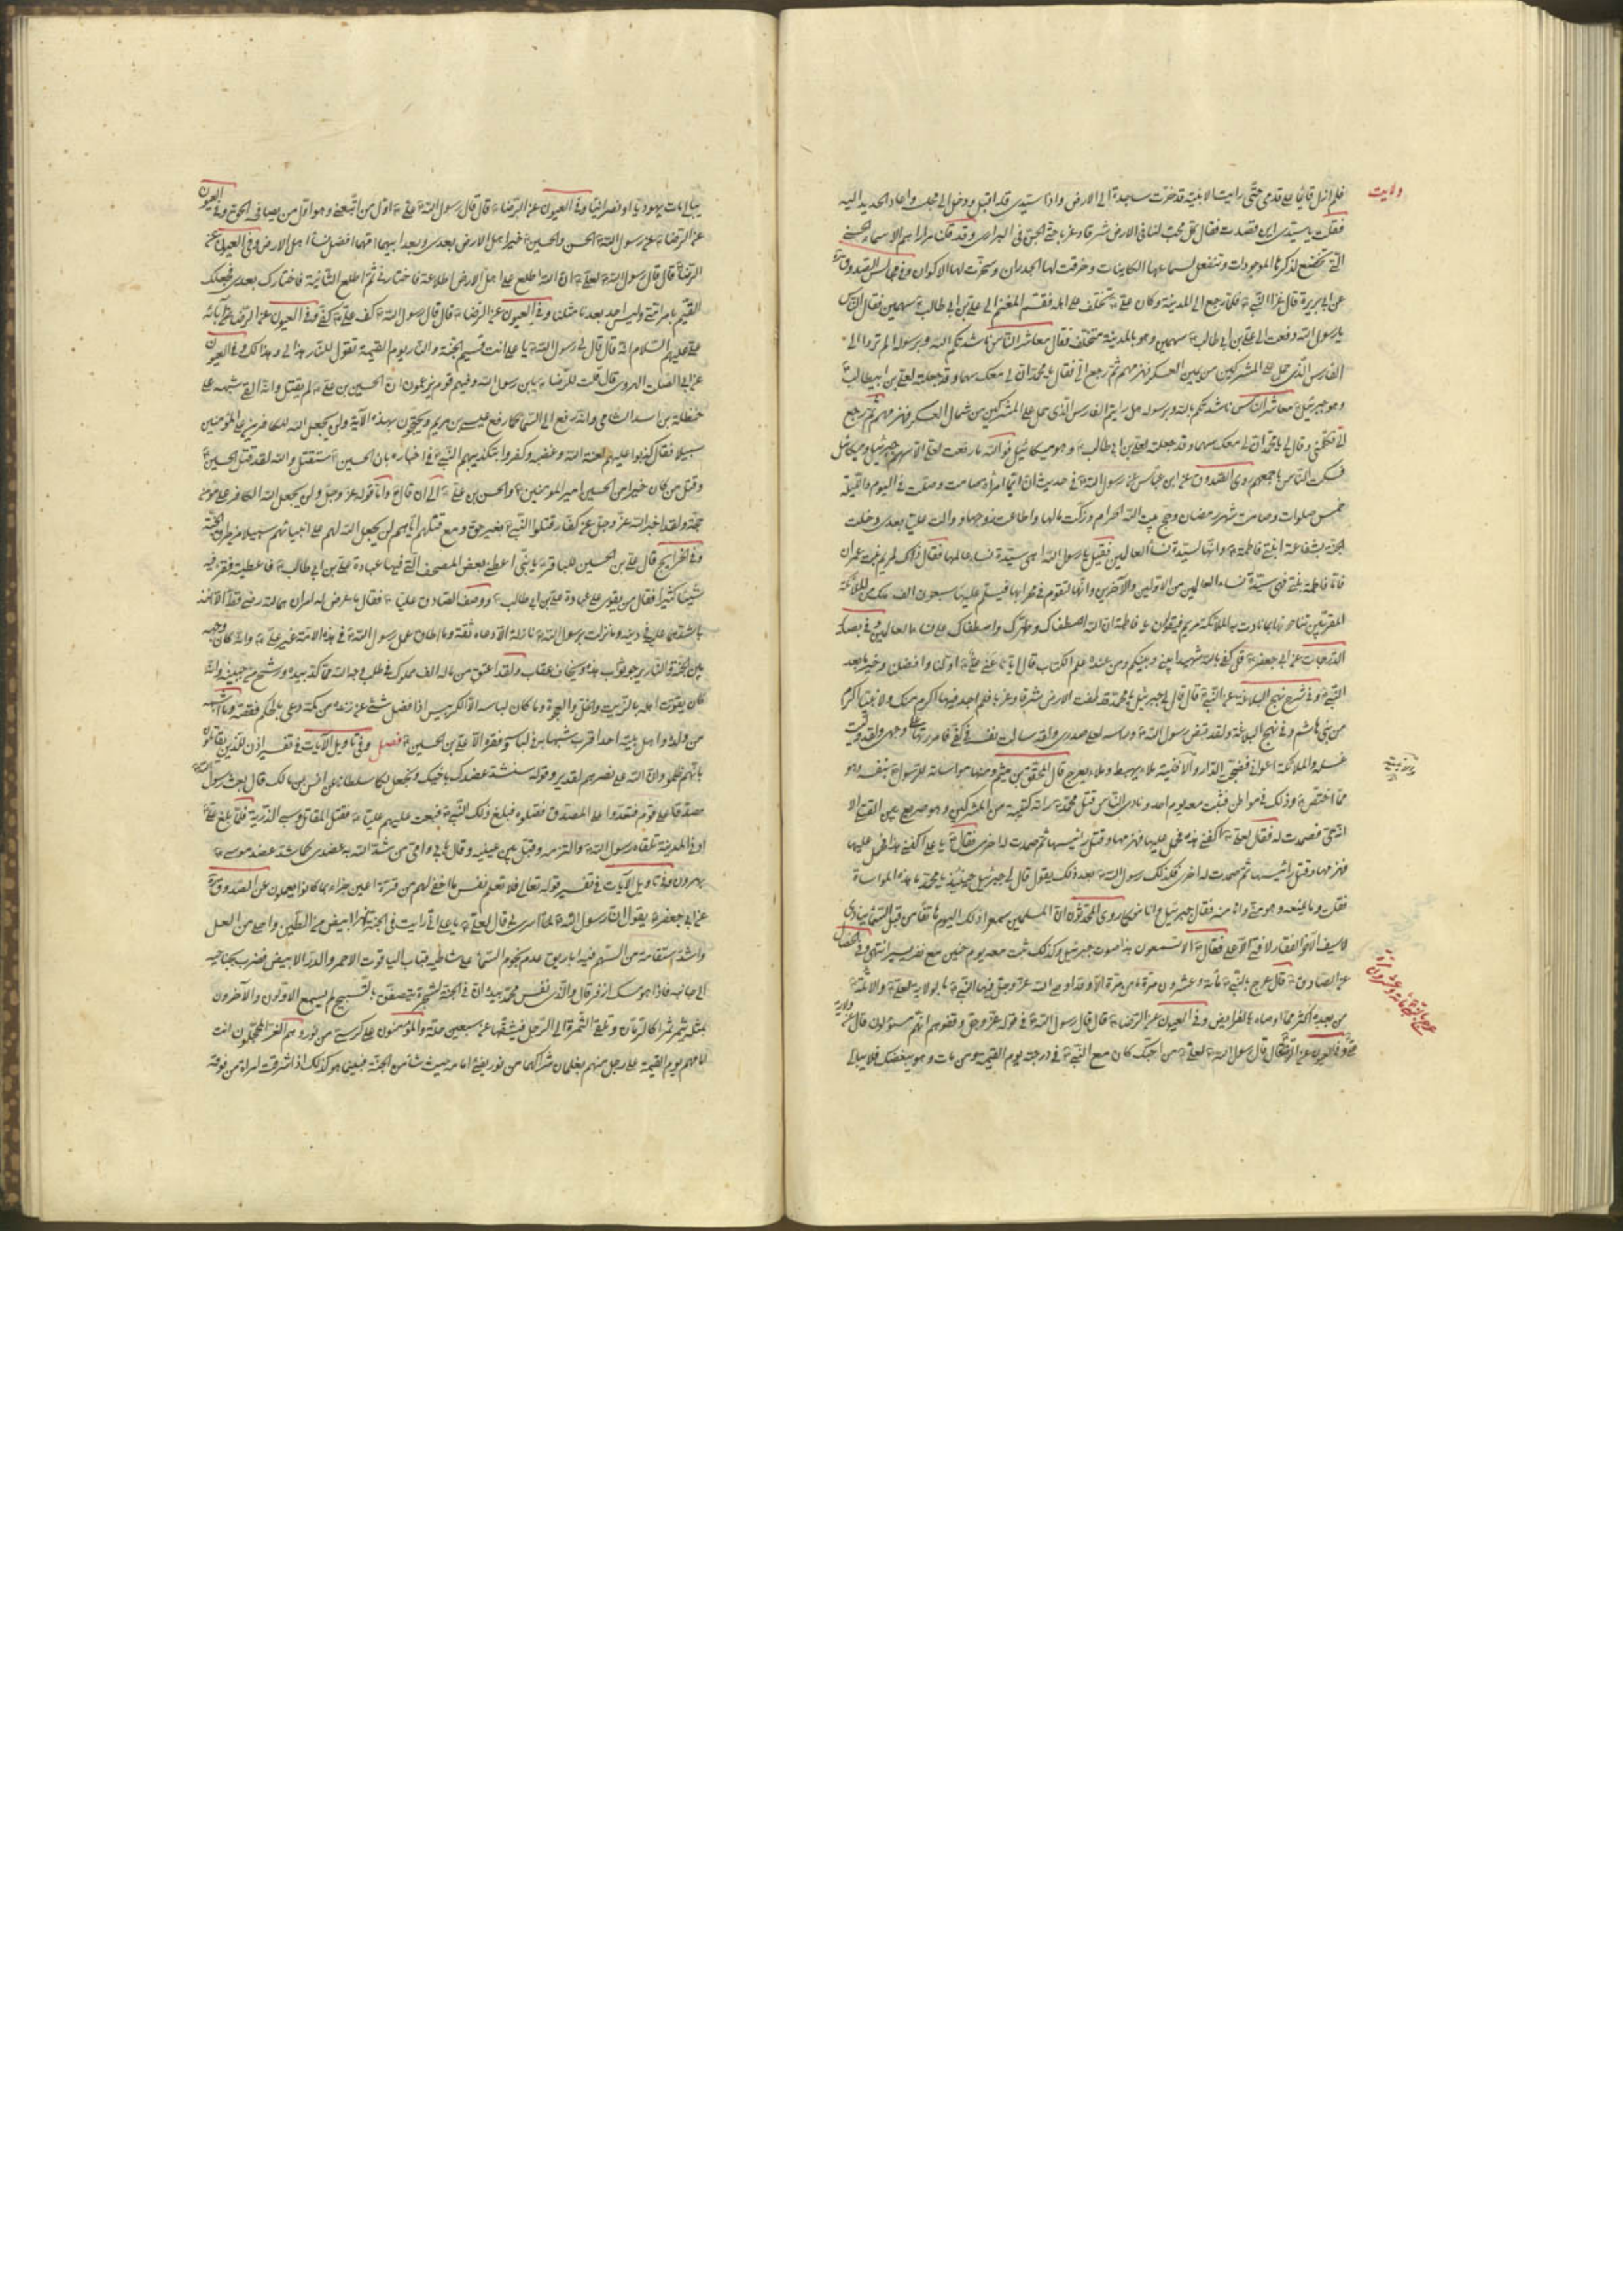 ولايت
فلم ازل قائما على قدمى حتى رايت الابنية قد خرت ساجدة الى الارض واذا سيدى قد اقبل ودخل الى محله واعاد الحديد اليه
فقلت يا سيدى اين قصدت فقال كل محب لنا فى الارض شرقا وغربا حتى الجن فى البرارى
التى تخضع لذكرها الموجودات وتنفعل لسماعها الكاينات وخرقت لها الجدران وسخرت لها الاكوان وفى مجالس الصدوق
عن ابى هريرة قال غزا النبى فلما رجع الى المدينة وكان على تخلف على اهله فقسم المغنم الى على بن ابى طالب سهمين فقال الناس
يا رسول الله دفعت الى على بن ابى طالب سهمين وهو بالمدينة متخلف فقال معاشر الناس ناشدتكم بالله وبرسوله الم تروا الى
الفارس الذى حمل على المشركين من يمين العسكر فهزمهم ثم رجع الى فقال يا محمد ان لى معك سهما وقد جعلته لعلى بن ابيطالب
وهو جبرئيل معاشر الناس ناشدتكم بالله وبرسوله هل رايتم الفارس الذى حمل على المشركين من شمال العسكر فهزمهم ثم رجع
الى فكلمنى وقال لى يا محمد ان لى معك سهما وقد جعلته لعلى بن ابى طالب وهو ميكائيل فوالله ما دفعت لعلى الا سهم جبرئيل وميكائيل
فكبر الناس باجمعهم روى الصدوق عن ابن عباس عن رسول الله فى حديث ان ايما امراة صلت فى اليوم والليلة
خمس صلوات وصامت شهر رمضان وحج بيت الله الحرام وزكت مالها واطاعت زوجها ووالت عليا بعدى دخلت
الجنة بشفاعة ابنتى فاطمة وانها لسيدة نساء العالمين فقيل يا رسول الله اهى سيدة نساء عالمها فقال ذاك لمريم بنت عمران
فاما فاطمة ابنتى فهى سيدة نساء العالمين من الاولين والآخرين وانها لتقوم فى محرابها فيسلم عليها سبعون الف ملك من الملائكة
المقربين ينادونها بما نادت به الملائكة مريم فيقولون يا فاطمة ان الله اصطفاك وطهرك واصطفاك على نساء العالمين وفى بصائر
الدرجات عن ابى جعفر قل كفى بالله شهيدا بينى وبينكم ومن عنده علم الكتاب قال ايانا عنى على اولنا وافضلنا وخيرنا بعد
النبى وفى شرح نهج البلاغة عن النبى قال قال لى جبرئيل يا محمد قد طفت الارض شرقا وغربا فلم اجد فيها اكرم منك ولا بيتا اكرم
من بنى هاشم وفى نهج البلاغة ولقد قبض رسول الله وراسه لعلى صدرى ولقد سالت نفسه فى كفى فامررتها على وجهى ولقد وليت
غسله والملائكة اعوانى فضجت الدار والافنية ملاء يهبط وملاء يعرج قال المحقق ابن ميثم ومنها مواساته للرسول بنفسه وهو
مما اختص به وذلك فى مواطن فثبت معه يوم احد ونادى الناس قتل محمد راته كتيبة من المشركين وهو صريع بين القتلى الا
انه حى فصمدت له فقال لعلى اكفنى هذه فحمل عليها فهزمها وقتل رئيسها ثم صمدت له اخرى فقال يا على اكفنى هذه فحمل عليها
فهزمها وقتل رئيسها ثم صمدت له اخرى فكذلك رسول الله بعد ذلك يقول قال لى جبرئيل حينئذ يا محمد ان هذه المواساة
فقلت وما يمنعه وهو منى وانا منه فقال جبرئيل وانا منكما وروى المحدثون ان المسلمين سمعوا ذلك اليوم هاتفا من قبل السماء ينادى
لا سيف الا ذو الفقار لا فتى الا على فقال الا تسمعون هذا صوت جبرئيل وكذلك ثبت معه يوم حنين مع نفر يسير انتهى وفى الخصال
عن الصادق قال عرج بالنبى مائة وعشرون مرة ما من مرة الا وقد اوصى الله عز وجل فيها النبى بالولاية لعلى والائمة
من بعده اكثر مما اوصاه بالفرايض وفى العيون عن الرضا قال قال رسول الله فى قوله عز وجل وقفوهم انهم مسؤلون قال عن ولاية
على وفى العيون عن الرضا قال قال رسول الله لعلى من احبك كان مع النبيين فى درجتهم يوم القيمة ومن مات وهو يبغضك فلا يبالى
يبالى مات يهوديا او نصرانيا وفى العيون عن الرضا قال قال رسول الله وفى اول من اتبعنى وهو اول من يصافحنى الحق وفى العيون
عن الرضا عن رسول الله الحسن والحسين خير اهل الارض بعدى وبعد ابيهما وامهما افضل نساء اهل الارض وفى العيون عن
الرضا قال قال رسول الله لعلى ان الله اطلع على اهل الارض اطلاعة فاختارنى ثم اطلع الثانية فاختارك بعدى فجعلك
القيم بامر امتى وليس احد بعدنا مثلنا وفى العيون عن الرضا قال قال رسول الله كف على كفى وفى العيون عن الرضا عن آبائه
عن على عليهم السلام انه قال قال لى رسول الله يا على انت قسيم الجنة والنار يوم القيمة تقول للنار هذا لى وهذا لك وفى العيون
عن ابى الصلت الهروى قال قلت للرضا يا بن رسول الله وفيهم قوم يزعمون ان الحسين بن على لم يقتل وانه القى شبهه على
حنظلة بن اسعد الشامى وانه رفع الى السماء كما رفع عيسى بن مريم ويحتجون بهذه الآية ولن يجعل الله للكافرين على المؤمنين
سبيلا فقال كذبوا عليهم لعنة الله وغضبه وكفروا بتكذيبهم النبى فى اخباره بان الحسين سيقتل والله لقد قتل الحسين
وقتل من كان خيرا من الحسين امير المومنين والحسن بن على الى ان قال واما قوله عز وجل ولن يجعل الله لكافر على مؤمن
حجة ولقد اخبر الله عز وجل عن كفار قتلوا النبيين بغير حق ومع قتلهم اياهم لن يجعل الله لهم على انبيائهم سبيلا من طريق الحجة
وفى الخرايج قال على بن الحسين للباقر يا بنى اعطنى بعض الصحف التى فيها عبادة على بن ابى طالب فاعطيته فقرا فيه
شيئا كثيرا فقال من يقوى على عبادة على بن ابى طالب ووصف الصادق عليا فقال ما عرض له امران هما لله رضى قط الا اخذ
باشدهما عليه فى دينه وما نزلت برسول الله نازلة الا دعاه ثقة وما اطاق عمل رسول الله فى هذه الامة غير على وانه كان وجهه
بين الجنة والنار يرجو ثواب هذه ويخاف عقاب ولقد اعتق من ماله الف مملوك فى طلب وجه الله مما كد بيده ورشح منه جبينه وانه
كان يقوت اهله بالزيت والخل والعجوة وما كان لباسه الا الكرابيس اذا فضل شئ عن زنده من كمه دعى بالجلم فقصه وما اشبه
من ولده واهل بيته احد اقرب شبها به فى لباسه وفقره الا على بن الحسين فصل وفى تاويل الآيات فى تفسير اذن للذين يقاتلون
بانهم ظلموا وان الله على نصرهم لقدير وقوله سنشد عضدك باخيك ونجعل لكما سلطانا عن انس بن مالك قال بعث رسول الله
مصدقا على قوم فتعدوا على المصدق فقتلوه فبلغ ذلك النبى فبعث عليهم عليا فقتل المقاتل وسبى الذرية فلما بلغ على
ادنى المدينة تلقاه رسول الله والتزمه وقبل بين عينيه وقال بابى وامى من شد الله به عضدى كما شد عضد موسى
بهرون وفى تاويل الآيات فى تفسير قوله تعالى فلا تعلم نفس ما اخفى لهم من قرة اعين جزاء بما كانوا يعملون عن الصدوق
عن ابى جعفر يقول ان رسول الله لما اسرى بى قال لعلى يا على انى رايت فى الجنة نهرا ابيض من الطين واحلى من العسل
واشد استقامة من السهم فيه اباريق عدد نجوم السماء على شاطيه قباب الياقوت الاحمر والدر الابيض فضرب جبرئيل بجناحيه
الى جانبه فاذا هو مسك اذفر قال والذى نفس محمد بيده ان فى الجنة لشجرا يتصفق بالتسبيح لم يسمع الاولون والآخرون
بمثله يثمر ثمرا كالرمان وتلقى الثمرة الى الرجل فيشقها عن سبعين حلة والمؤمنون على كرسى من نور وهم الغر المحجلون انت
امامهم يوم القيمة على رجل منهم نعلان شراكهما من نور يضئ امامه حيث شاء من الجنة فبينما هو كذلك اذا شرفت امراة من فوقه